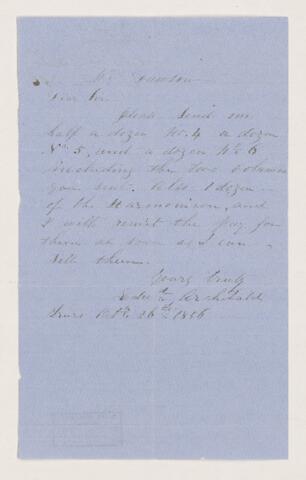 Mr Dawson
Dear Sir
Please send me
half a dozen No. 4 a dozen
No 5, and a dozen No 6
including the two volumes
you sent. Also 1 dozen
of the Harmonicon, and
I will remit the pay for
them as soon as I can
sell them.
Yours truly
Archibald
Truro 26th 1856